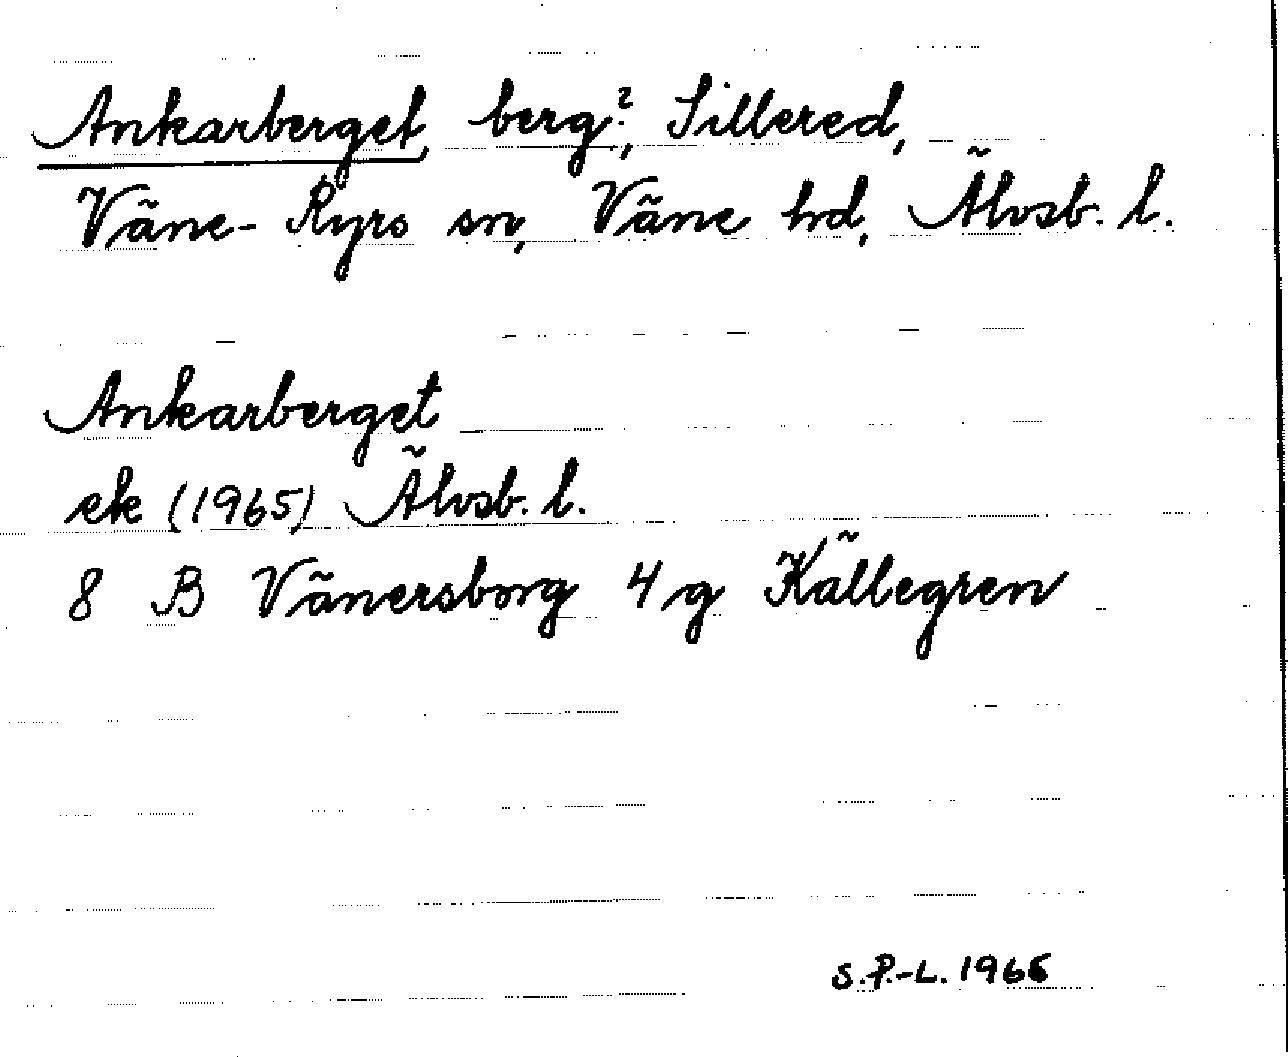 Ankarberget, berg?, Sillered,
Väne-Ryrs sn, Väne hd, Älvsb. l.
Ankarberget
ek (1965) Älvsb. l.
8 B Vänersborg 4 g Källegren
S.P.-L. 1966